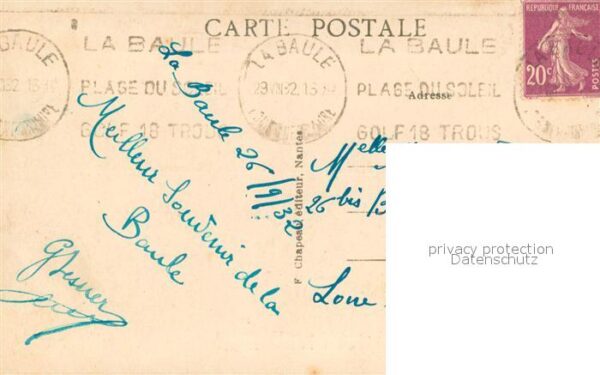 CARTE POSTALE
LA BAULE
LA BAULE
LA BAULE
PLAGE DU SOLEIL
29 VII 32
PLAGE DU SOLEIL
GOLF 18 TROUS
GOLF 18 TROUS
REPUBLIQUE FRANÇAISE
20c
POSTES
Adresse
La Baule 26/9/32
Meilleur Souvenir de la
Baule
F. Chapeau, éditeur, Nantes.
Melle
26 bis B
Loire
privacy protection
Datenschutz